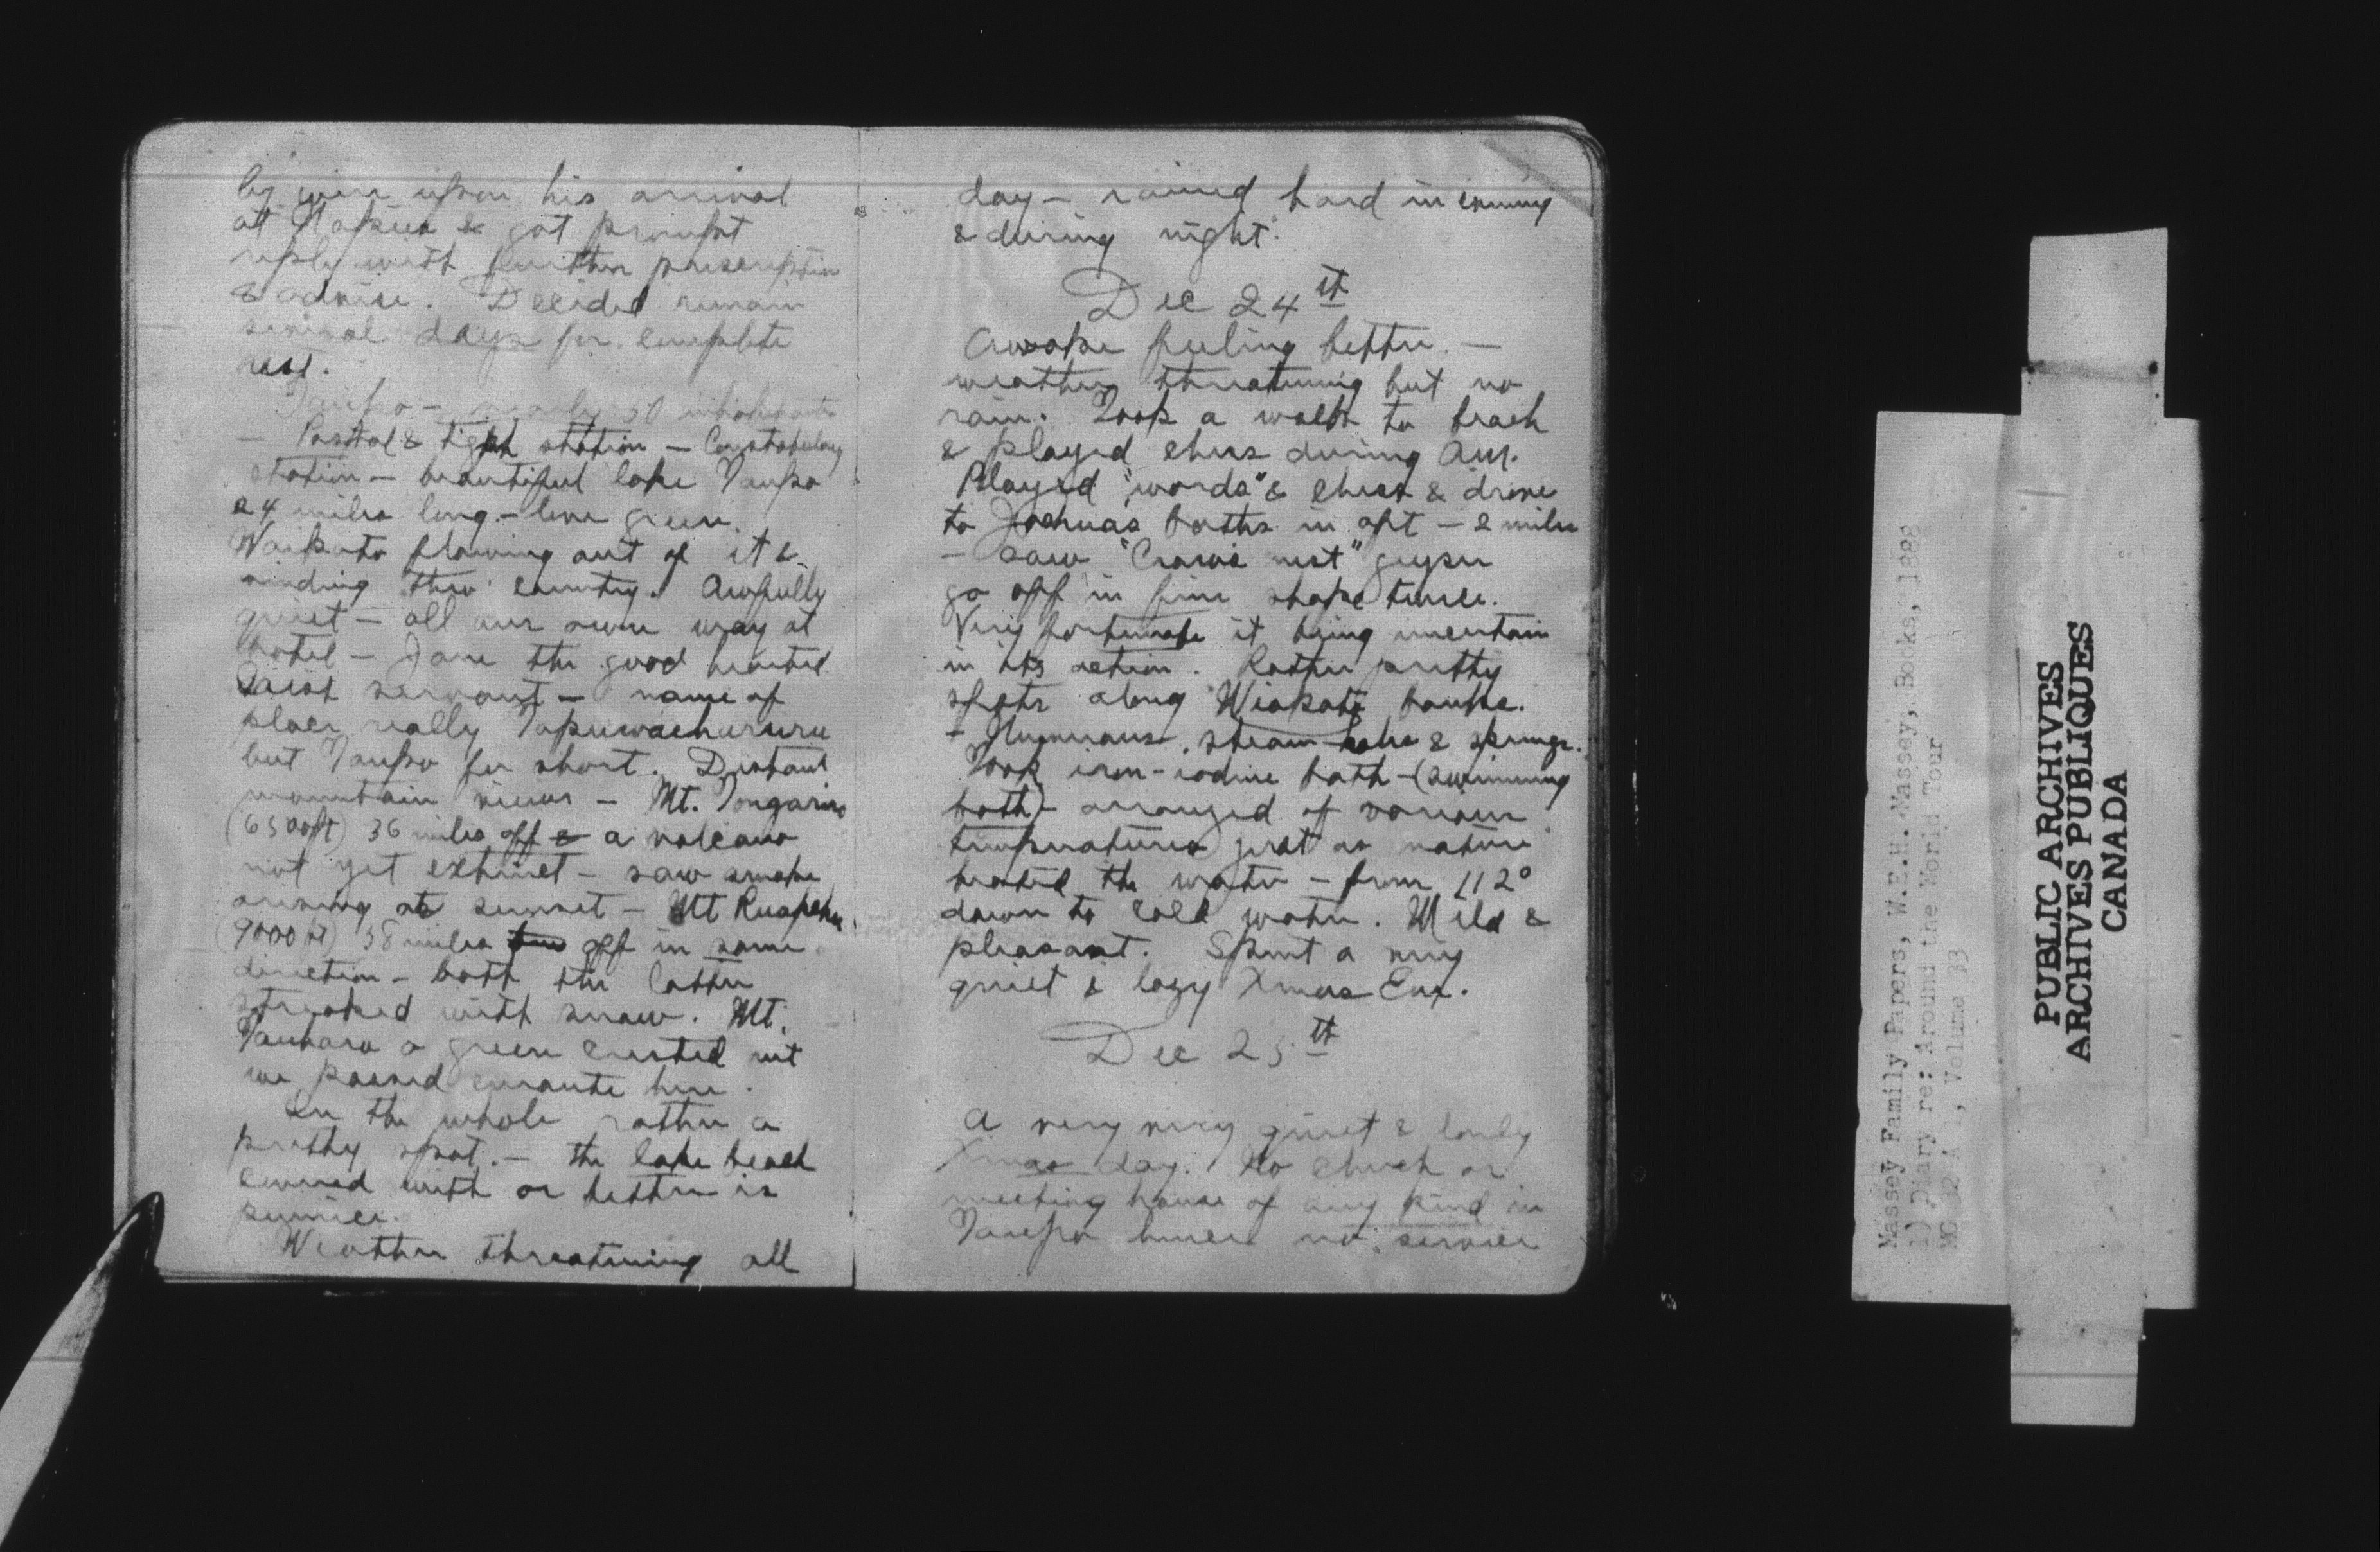 by wire upon his arrival
at Napier & got prompt
reply with further prescription
& advice. Decided remain
several days for complete
rest.
Taupo - nearly 50 inhabitants
- Postal & tigh station - Constabulary
station - beautiful lake Taupo
24 miles long -
Waikato flowing out of it &
winding thro' country. Awfully
quiet - all our own way at
hotel - Jane the good hearted
servant - name of
place really Tapuwaehururu
but Taupo for short. Distant
mountain views - Mt. Tongariro
(6500ft) 36 miles off & a volcano
not yet extinct - saw smoke
arising at sunset - Mt Ruapehu
(9000 ft) 58 miles off in same
direction - both the latter
streaked with snow. Mt.
Tauhara a green crusted mt
we passed enroute here.
On the whole rather a
pretty spot. - the lake beach
covered with or better is
pumice.
Weather threatening all
day - rained hard in evening
& during night.
Dec 24th
Awoke feeling better. -
weather threatening but no
rain. Took a walk to beach
& played chess during am.
Played "words" & chess & drive
to Joshuas baths in aft - 2 miles
- saw "Crows nest" geyser
go off in fine shape twice.
Very fortunate it being uncertain
in its action. Rather pretty
spots along Wiakato banks.
- Numerous steam holes & springs.
Took iron-iodine bath - (swimming
bath) - arranged of various
temperatures just as nature
heated the water - from 112°
down to cold water. Mild &
pleasant. Spent a very
quiet & lazy Xmas Eve.
Dec 25th
A very very quiet & lonely
Xmas day. No church or
meeting house of any kind in
Taupo hence no service
Massey Family Papers, W.E.H. Massey, Books, 1888
1) Diary re: Around the World Tour
MG 32 A 1, Volume 33
PUBLIC ARCHIVES
ARCHIVES PUBLIQUES
CANADA